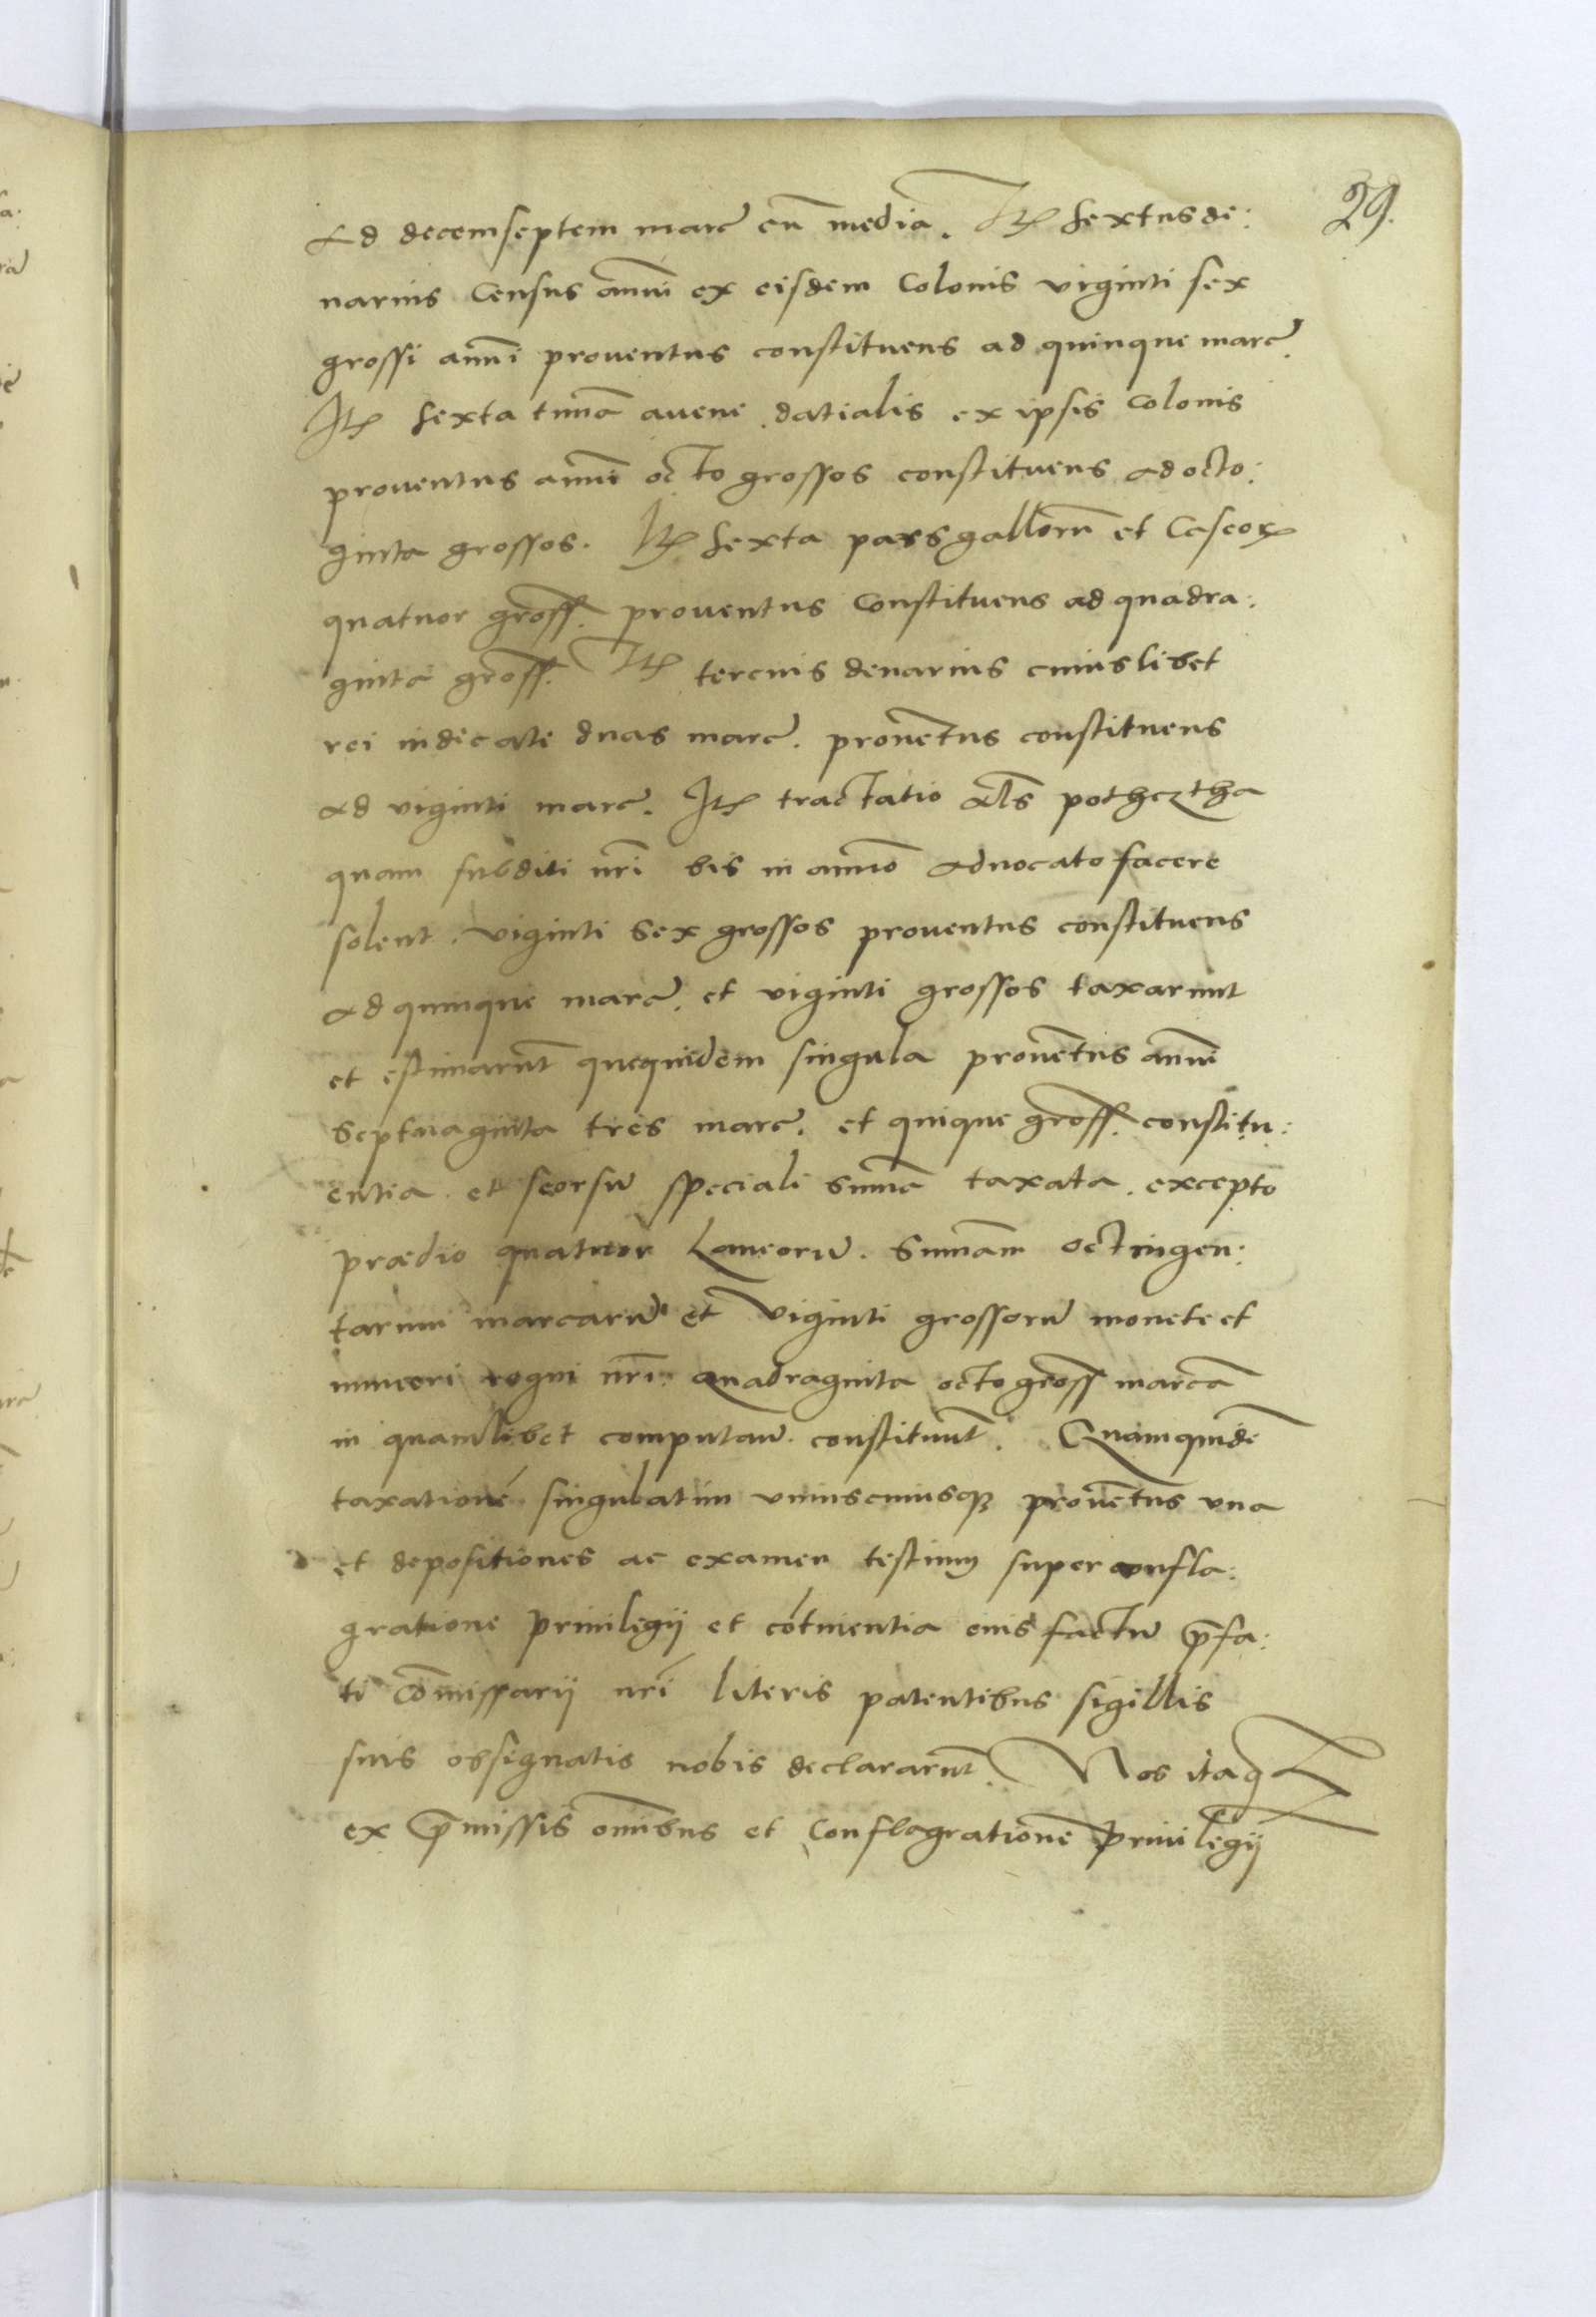 29.
ad decemseptem marc̄ cū media. Itē sextus de:
narius Census annui ex eisdem Colonis viginti sex
grossi annui prouentus constituens ad quinque marc̄.
Itē sexta tunna auene datialis ex ipsis Colonis
prouentus annui octo grossos constituens ad octo:
ginta grossos. Itē sexta pars gallorū et Caseoꝝ
quatuor gross. prouentus constituens ad quadra:
ginta gross. Itē tercius denarius cuiuslibet
rei iudicate duas marc̄. prouētus constituens
ad viginti marc̄. Itē tractatio als potheztha
quam subditi nr̄i bis in anno aduocato facere
solent. viginti sex grossos prouentus constituens
ad quinque marc̄. et viginti grossos taxarunt
et estimarūt quequidem singula prouētus annui
septuaginta tres marc̄. et quinque gross. constitu:
entia et seorsū speciali summa taxata. excepto
prædio quatuor Laneorū. Summam octingen:
tarum marcarū et viginti grossorū monete et
numeri regni nr̄i. quadraginta octo gross marcā
in quamlibet computan̄. constituūt. Quamquidē
taxationē singulatim vniuscuiusqꝫ prouētus vna
et depositiones ac examen testium super confla:
gratione priuilegij et cōtinentia eius factū p̄fa:
ti cōmissarij nr̄i literis patentibus sigillis
suis obsignatis nobis declararūt. Nos itaqꝫ
ex p̄missis om̄ibus et Conflagrationē priuilegij